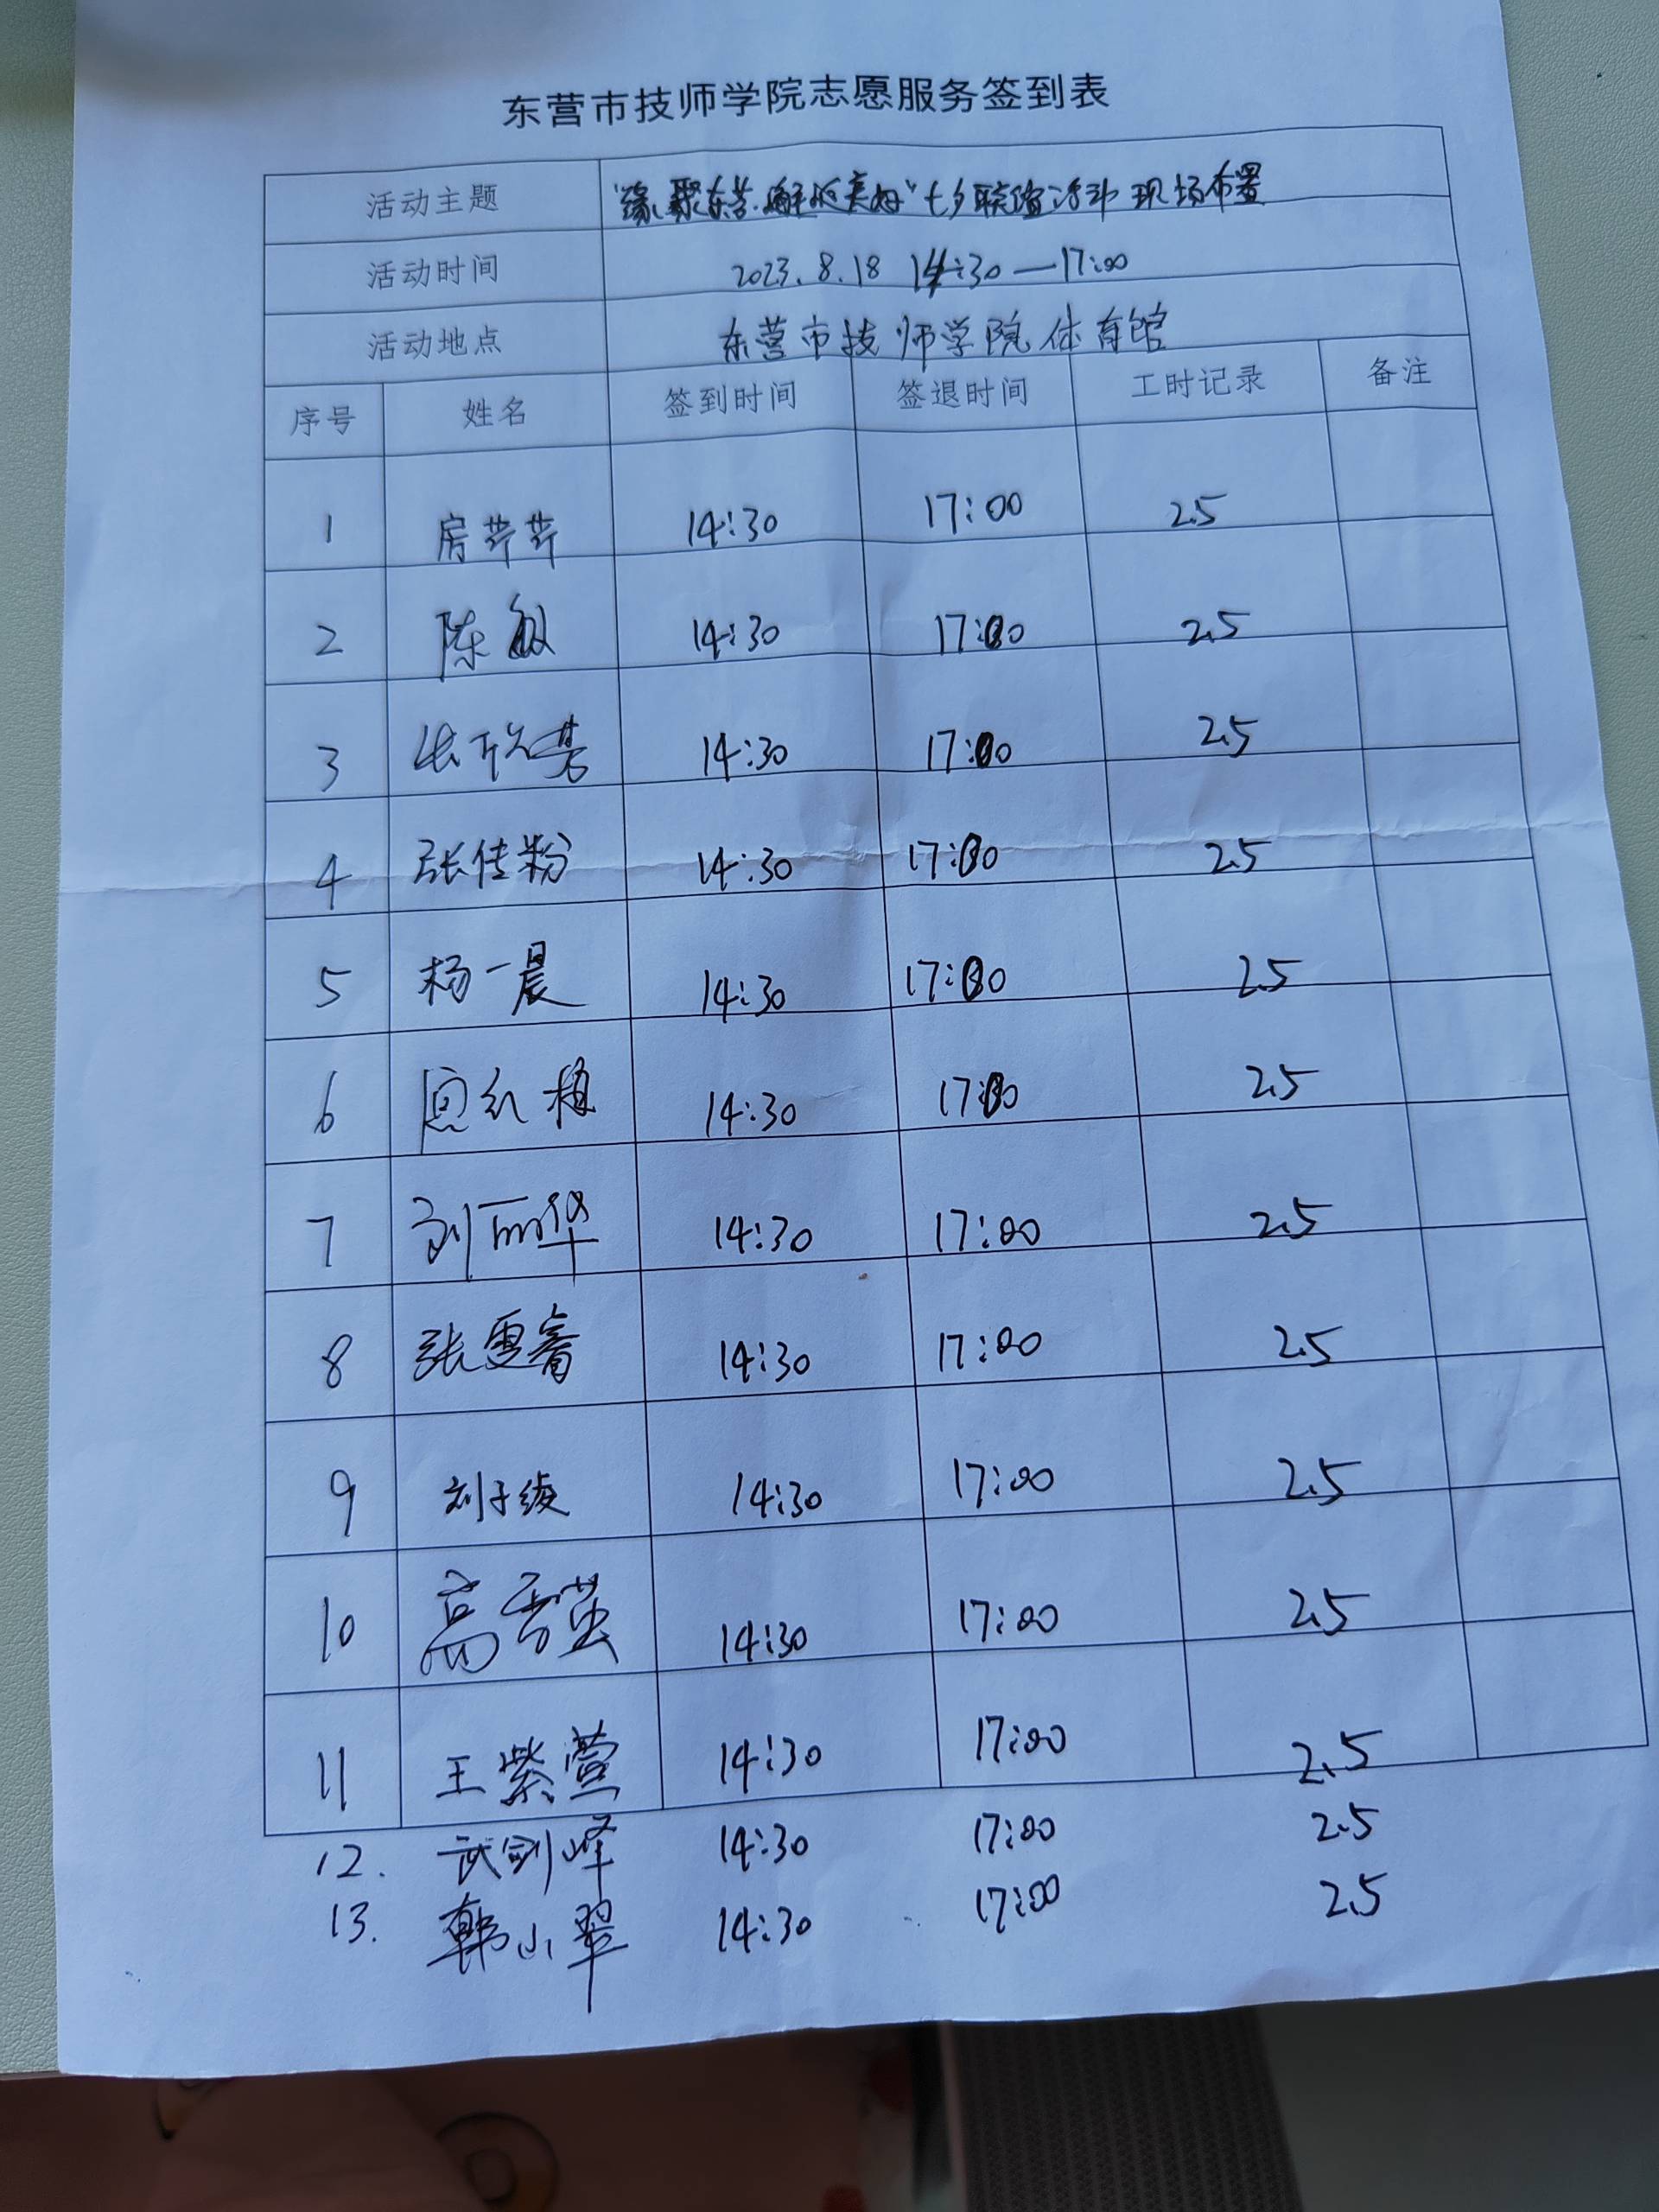 东营市技师学院志愿服务签到表
活动主题 "缘聚东营.邂逅美好"七夕联谊活动 现场布置
活动时间 2023.8.18 14:30—17:00
活动地点 东营市技师学院体育馆
序号 姓名 签到时间 签退时间 工时记录 备注
1 房芹芹 14:30 17:00 2.5
2 陈敏 14:30 17:00 2.5
3 14:30 17:00 2.5
4 张佳粉 14:30 17:00 2.5
5 杨一晨 14:30 17:00 2.5
6 14:30 17:00 2.5
7 刘丽华 14:30 17:00 2.5
8 张雯睿 14:30 17:00 2.5
9 刘子绫 14:30 17:00 2.5
10 高雪莹 14:30 17:00 2.5
11 王紫萱 14:30 17:00 2.5
12. 武剑峰 14:30 17:00 2.5
13. 韩小翠 14:30 17:00 2.5